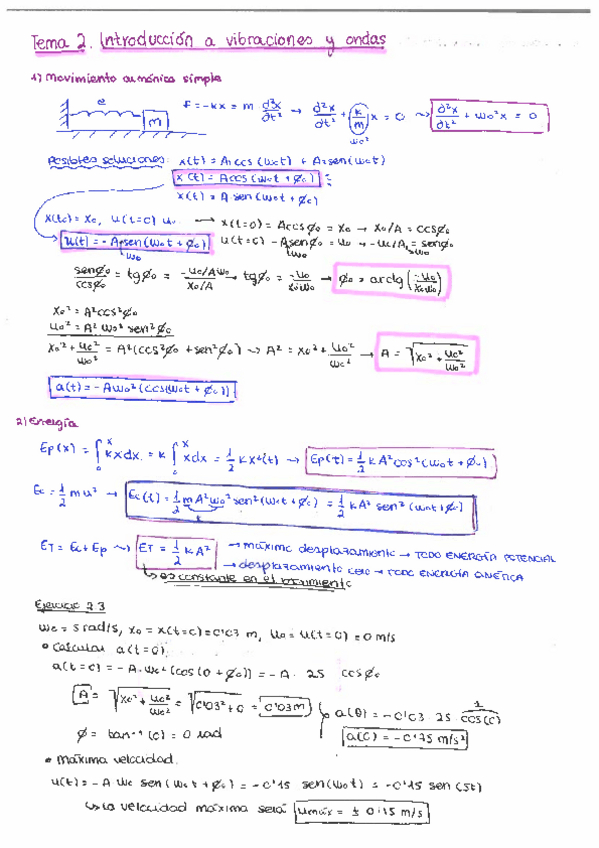 Tema 2. Introducción a vibraciones y ondas
1) Movimiento armónico simple
e
m
F = -kx = m ∂²x/∂t² → ∂²x/∂t² + (k/m) x = 0 ~> ∂²x/∂t² + ω₀²x = 0
ω₀²
Posibles soluciones: x(t) = A₁cos(ω₀t) + A₂sen(ω₀t)
x(t) = A cos(ω₀t + φ₀)
x(t) = A sen(ω₀t + φ₀)
x(t₀) = x₀, u(t=0) u₀ → x(t=0) = A cos φ₀ = x₀ → x₀/A = cos φ₀
u(t) = -A sen(ω₀t + φ₀) u(t=0) - A sen φ₀ = u₀ → -u₀/A = sen φ₀
ω₀ ω₀ ω₀
sen φ₀/cos φ₀ = tg φ₀ = (-u₀/Aω₀)/(x₀/A) → tg φ₀ = -u₀/x₀ω₀ → φ₀ = arctg(-u₀/x₀ω₀)
x₀² = A²cos²φ₀
u₀² = A² ω₀² sen²φ₀
x₀² + u₀²/ω₀² = A²(cos²φ₀ + sen²φ₀) ~> A² = x₀² + u₀²/ω₀² → A = √(x₀² + u₀²/ω₀²)
a(t) = -Aω₀²(cos(ω₀t + φ₀))
2) Energía
Ep(x) = ∫₀ˣ kxdx = k ∫₀ˣ xdx = 1/2 kx²(t) → Ep(t) = 1/2 k A² cos²(ω₀t + φ₀)
Ec = 1/2 mu² → Ec(t) = 1/2 m A²ω₀² sen²(ω₀t + φ₀) = 1/2 kA² sen²(ω₀t + φ₀)
k
ET = Ec + Ep ~> ET = 1/2 k A² → máximo desplazamiento → TODO ENERGÍA POTENCIAL
→ desplazamiento cero → TODO ENERGÍA CINÉTICA
↳ es constante en el movimiento
Ejercicio 2.3
ω₀ = 5 rad/s, x₀ = x(t=0) = 0'03 m, u₀ = u(t=0) = 0 m/s
• Calcular a(t=0).
a(t=0) = -A·ω₀²(cos(0 + φ₀)) = -A · 25 cos φ₀
A = √(x₀² + u₀²/ω₀²) = √(0'03² + 0) = 0'03m
φ = tan⁻¹(0) = 0 rad
1
a(0) = -0'03 · 25 · cos(0)
a(0) = -0'75 m/s²
• Máxima velocidad.
u(t) = -A ω₀ sen(ω₀t + φ₀) = -0'15 sen(ω₀t) = -0'15 sen(5t)
↳ la velocidad máxima será umáx = ± 0'15 m/s